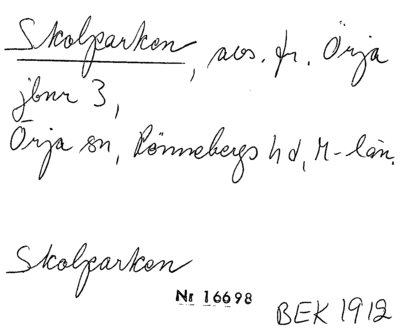 Skolparken, avs. fr. Örja
jbnr 3,
Örja sn, Rönnebergs hd, M-län.
Skolparken
Nr 16698
BEK 1912